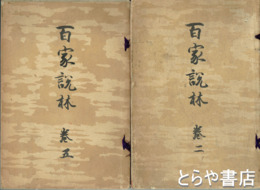 百家説林
巻二
百家説林
巻五
とらや書店